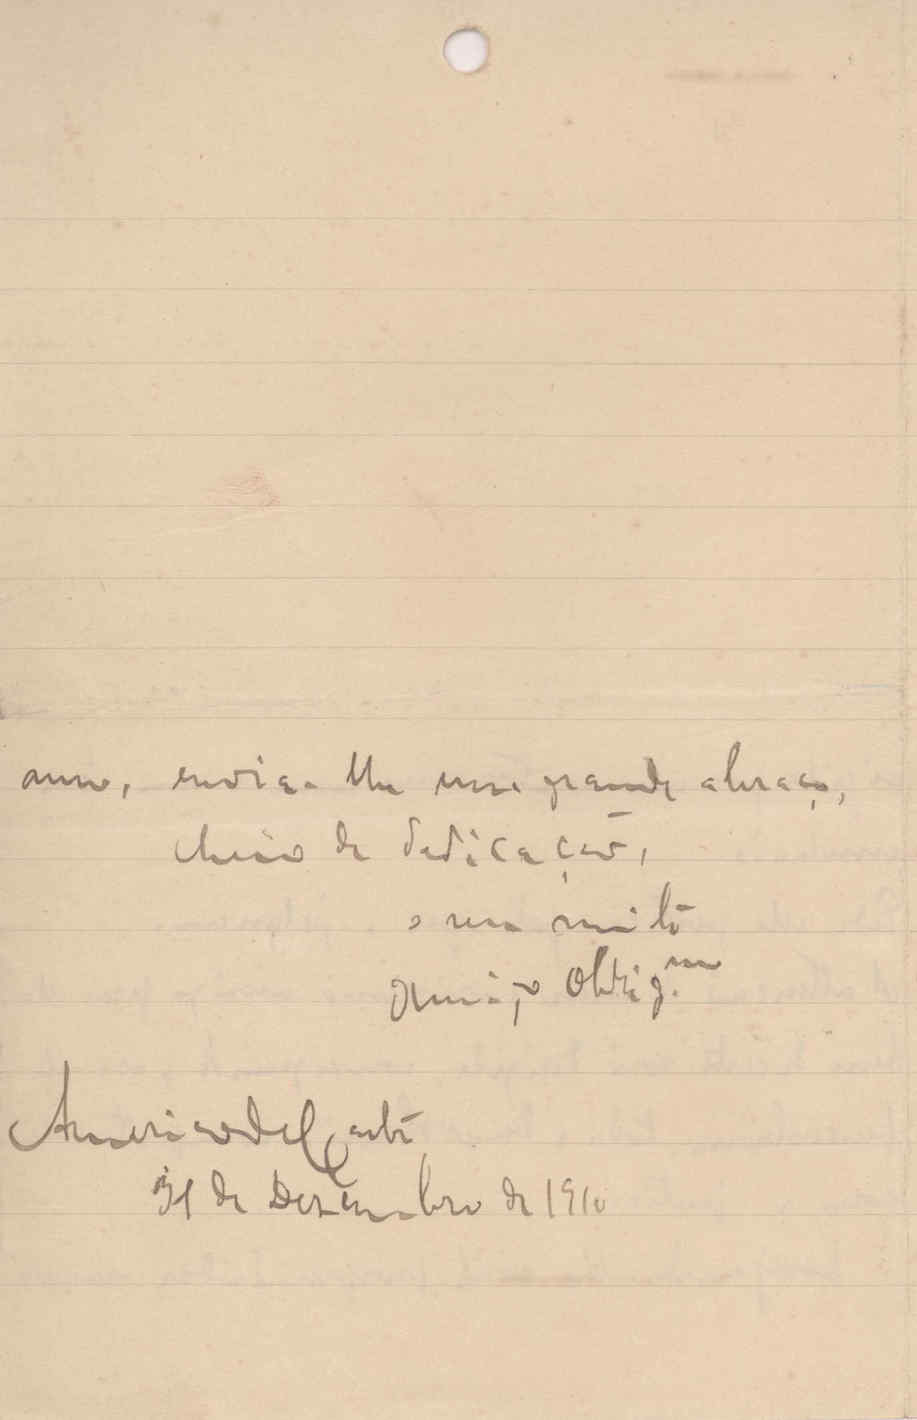 anno, envia-lhe um grande abraço,
cheio de dedicação,
o seu muito
amigo obrig.mo
Americo de Castro
31 de Dezembro de 1910